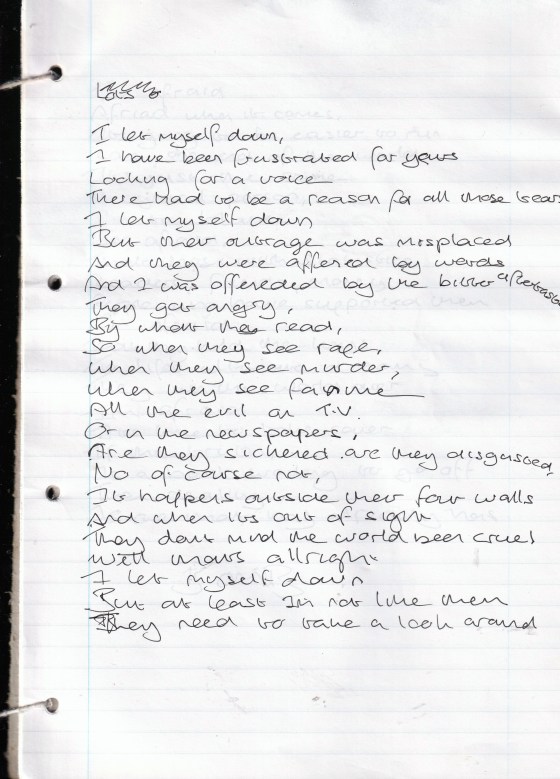 I let myself down,
I have been frustrated for years
Looking for a voice
There had to be a reason for all those tears
I let myself down
But their outrage was misplaced
And they were affered by words
And I was offereded by the bitter aftertaste
They got angry,
By what they read,
So when they see rape,
When they see murder,
When they see famine
All the evil on T.V.
Or in the newspapers,
Are they sickened are they disgusted
No of course not,
It happens outside their four walls
And when its out of sight
They dont mind the world been cruel
Well thats allright
I let myself down
But at least Im not like them
They need to take a look around